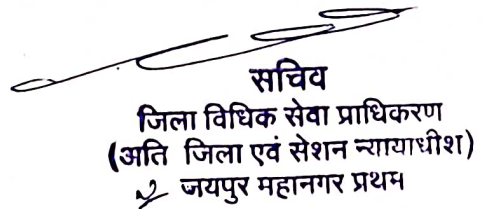 सचिव
जिला विधिक सेवा प्राधिकरण
(अति जिला एवं सेशन न्यायाधीश)
जयपुर महानगर प्रथम